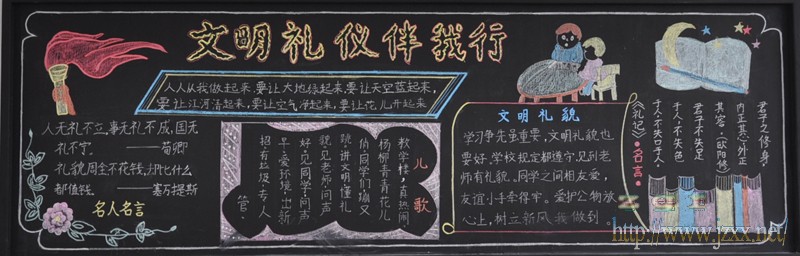 文明礼仪伴我行
人人从我做起来,要让大地绿起来,要让天空蓝起来,
要让江河清起来,要让空气净起来,要让花儿开起来
人无礼不立,事无礼不成,国无
礼不宁。——荀卿
礼貌周全不花钱,却比什么
都值钱。——塞万提斯
名人名言
儿歌
教学楼,真热闹
杨柳青青花儿
俏同学们蹦又
跳,讲文明懂礼
貌见老师问声
好,见同学问声
早爱环境,出新
招,有垃圾,专人
管。
文明礼貌
学习争先虽重要,文明礼貌也
要好,学校规定都遵守,见到老
师有礼貌。同学之间相友爱,
友谊小手牵得牢。爱护公物放
心上,树立新风我做到
君子之修身,
内正其心,外正
其容。《欧阳修》
君子不失足
于人,不失色
于人,不失口于人。
《礼记》
名言
http://www.jzxx.net/